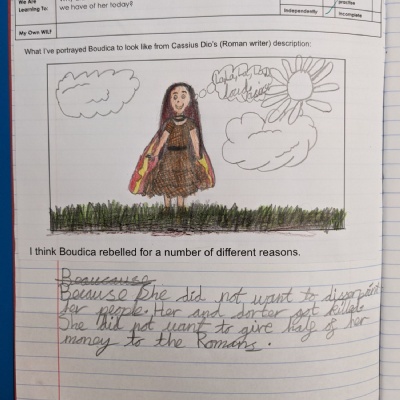 We Are
Learning To:
we have of her today?
practise
Independently
incomplete
My Own WILF
What I've portrayed Boudica to look like from Cassius Dio's (Roman writer) description:
I think Boudica rebelled for a number of different reasons.
Beaucause
Becuse She did not want to
her people. Her and dorter got killed.
She did not want to give half of her
money to the Romans.